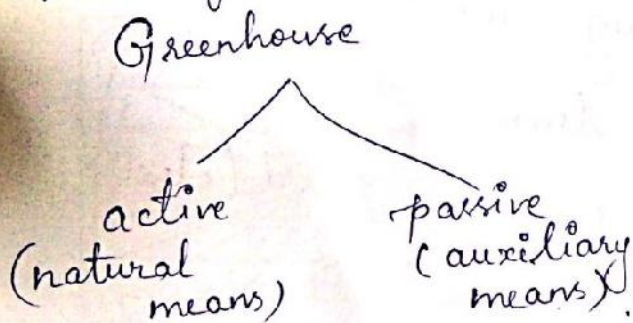 Greenhouse
active
(natural
means)
passive
(auxiliary
means).